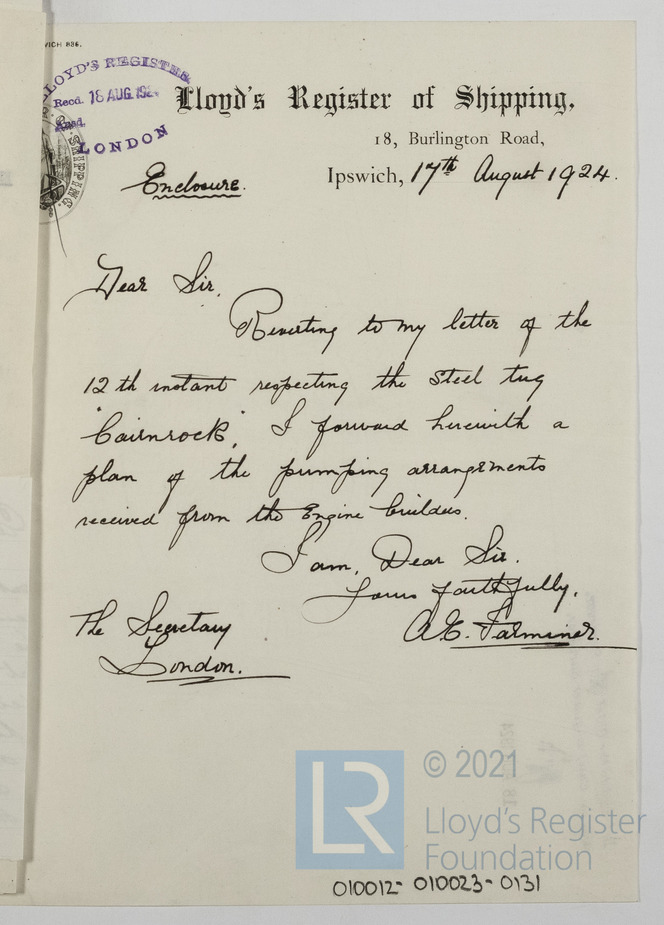 WICH 835.
LLOYD'S REGISTER
Recd. 18 AUG. 192
LONDON
SHIPPING
Lloyd's Register of Shipping,
18, Burlington Road,
Ipswich, 17th August 1924.
Enclosure.
Dear Sir,
Reverting to my letter of the
12th instant respecting the Steel tug
"Cairnrock", I forward herewith a
plan of the pumping arrangements
received from the Engine builders.
I am, Dear Sir.
Yours faithfully,
A.E. Farminer.
The Secretary
London.
LR
© 2021
Lloyd's Register
Foundation
010012-010023-0131